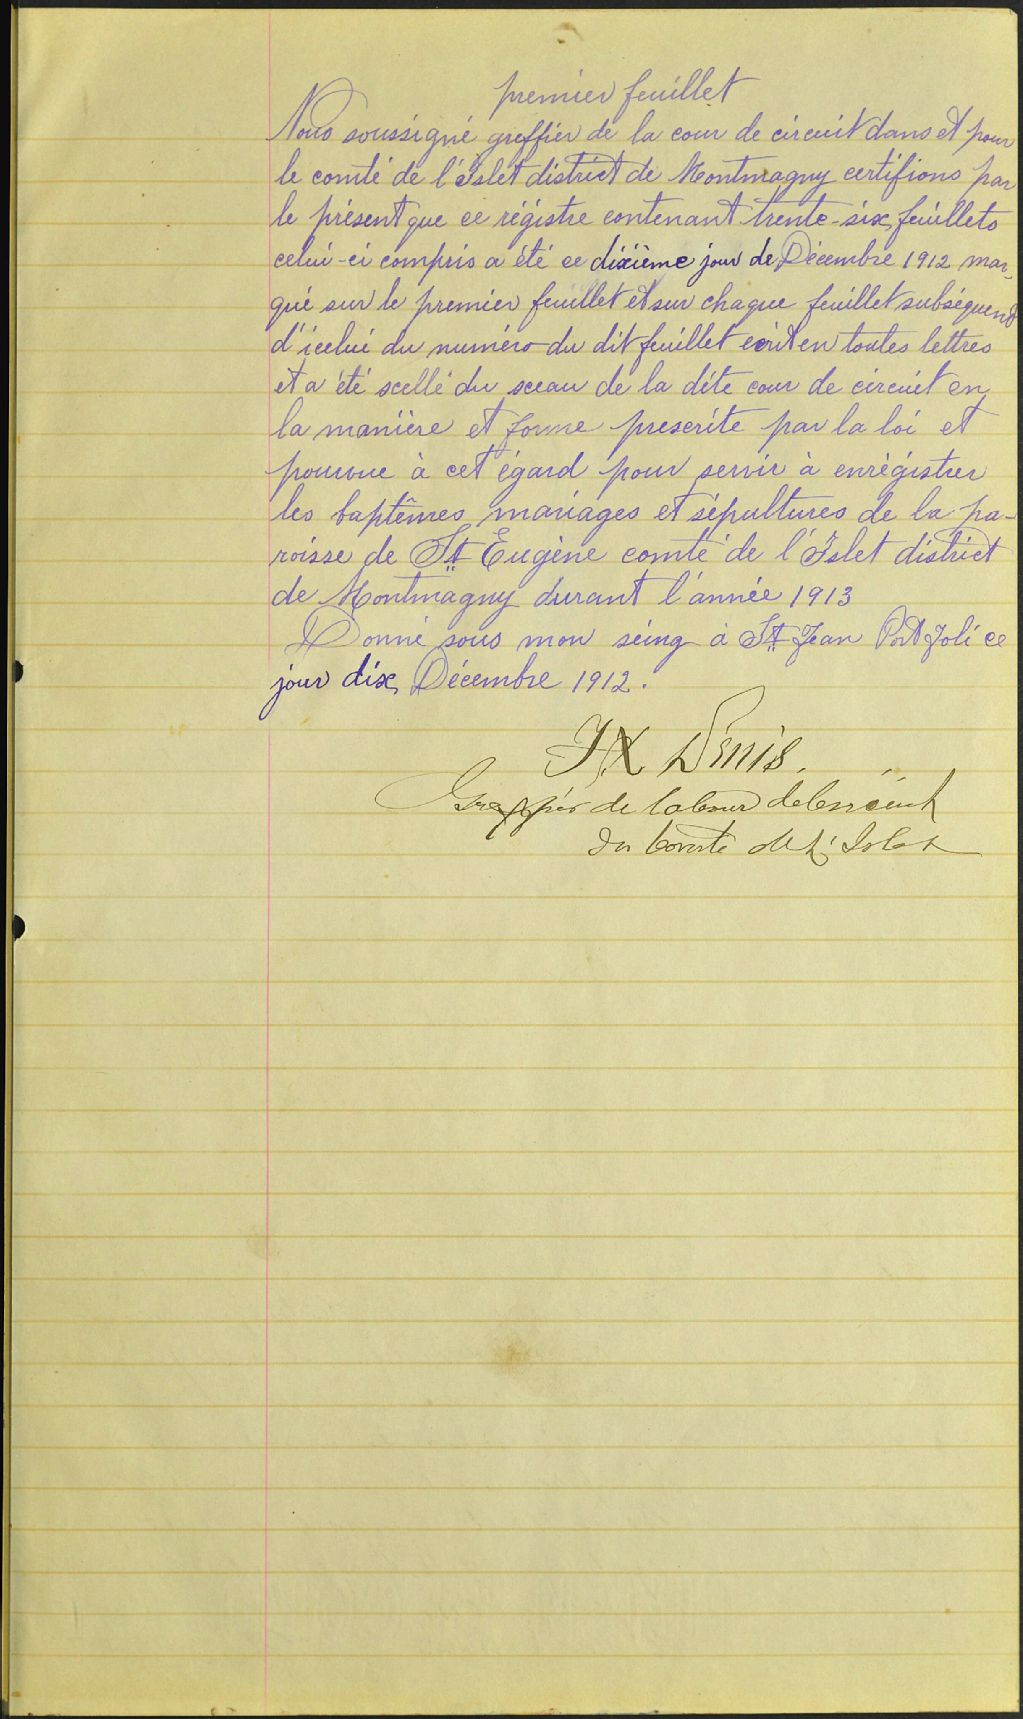 premier feuillet
Nous soussigné greffier de la cour de circuit dans et pour
le comté de l'Islet district de Montmagny certifions par
le présent que ce régistre contenant trente-six feuillets
celui-ci compris a été ce dixième jour de Décembre 1912 mar-
qué sur le premier feuillet et sur chaque feuillet subséquent
d'icelui du numéro du dit feuillet écrit en toutes lettres
et a été scellé du sceau de la dite cour de circuit en
la manière et forme prescrite par la loi et
pourvue à cet égard pour servir à enrégistrer
les baptêmes mariages et sépultures de la pa-
roisse de St Eugène comté de l'Islet district
de Montmagny durant l'année 1913
Donné sous mon seing à St Jean Port Joli ce
jour dix Décembre 1912.
F.X Denis.
Greffier de la Cour de Circuit
du Comté de L'Islet